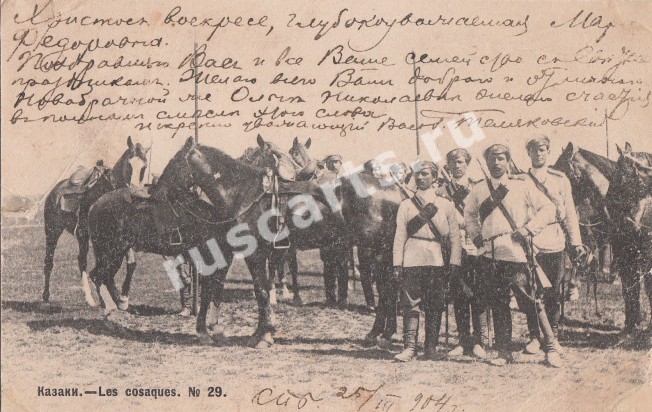 Христосъ воскресе, глубокоуважаемая Мар
Федоровна.
Поздравляю Васъ и все Ваше семейство съ
праздникомъ. Желаю всего Вамъ доброго и
Новобрачной же Ольгѣ Николаевнѣ желаю счастія
въ полномъ смыслѣ этого слова
искренно уважающій Васъ
ruscarts.ru
Казаки.—Les cosaques. № 29.
СПб. 25/III 904 г.